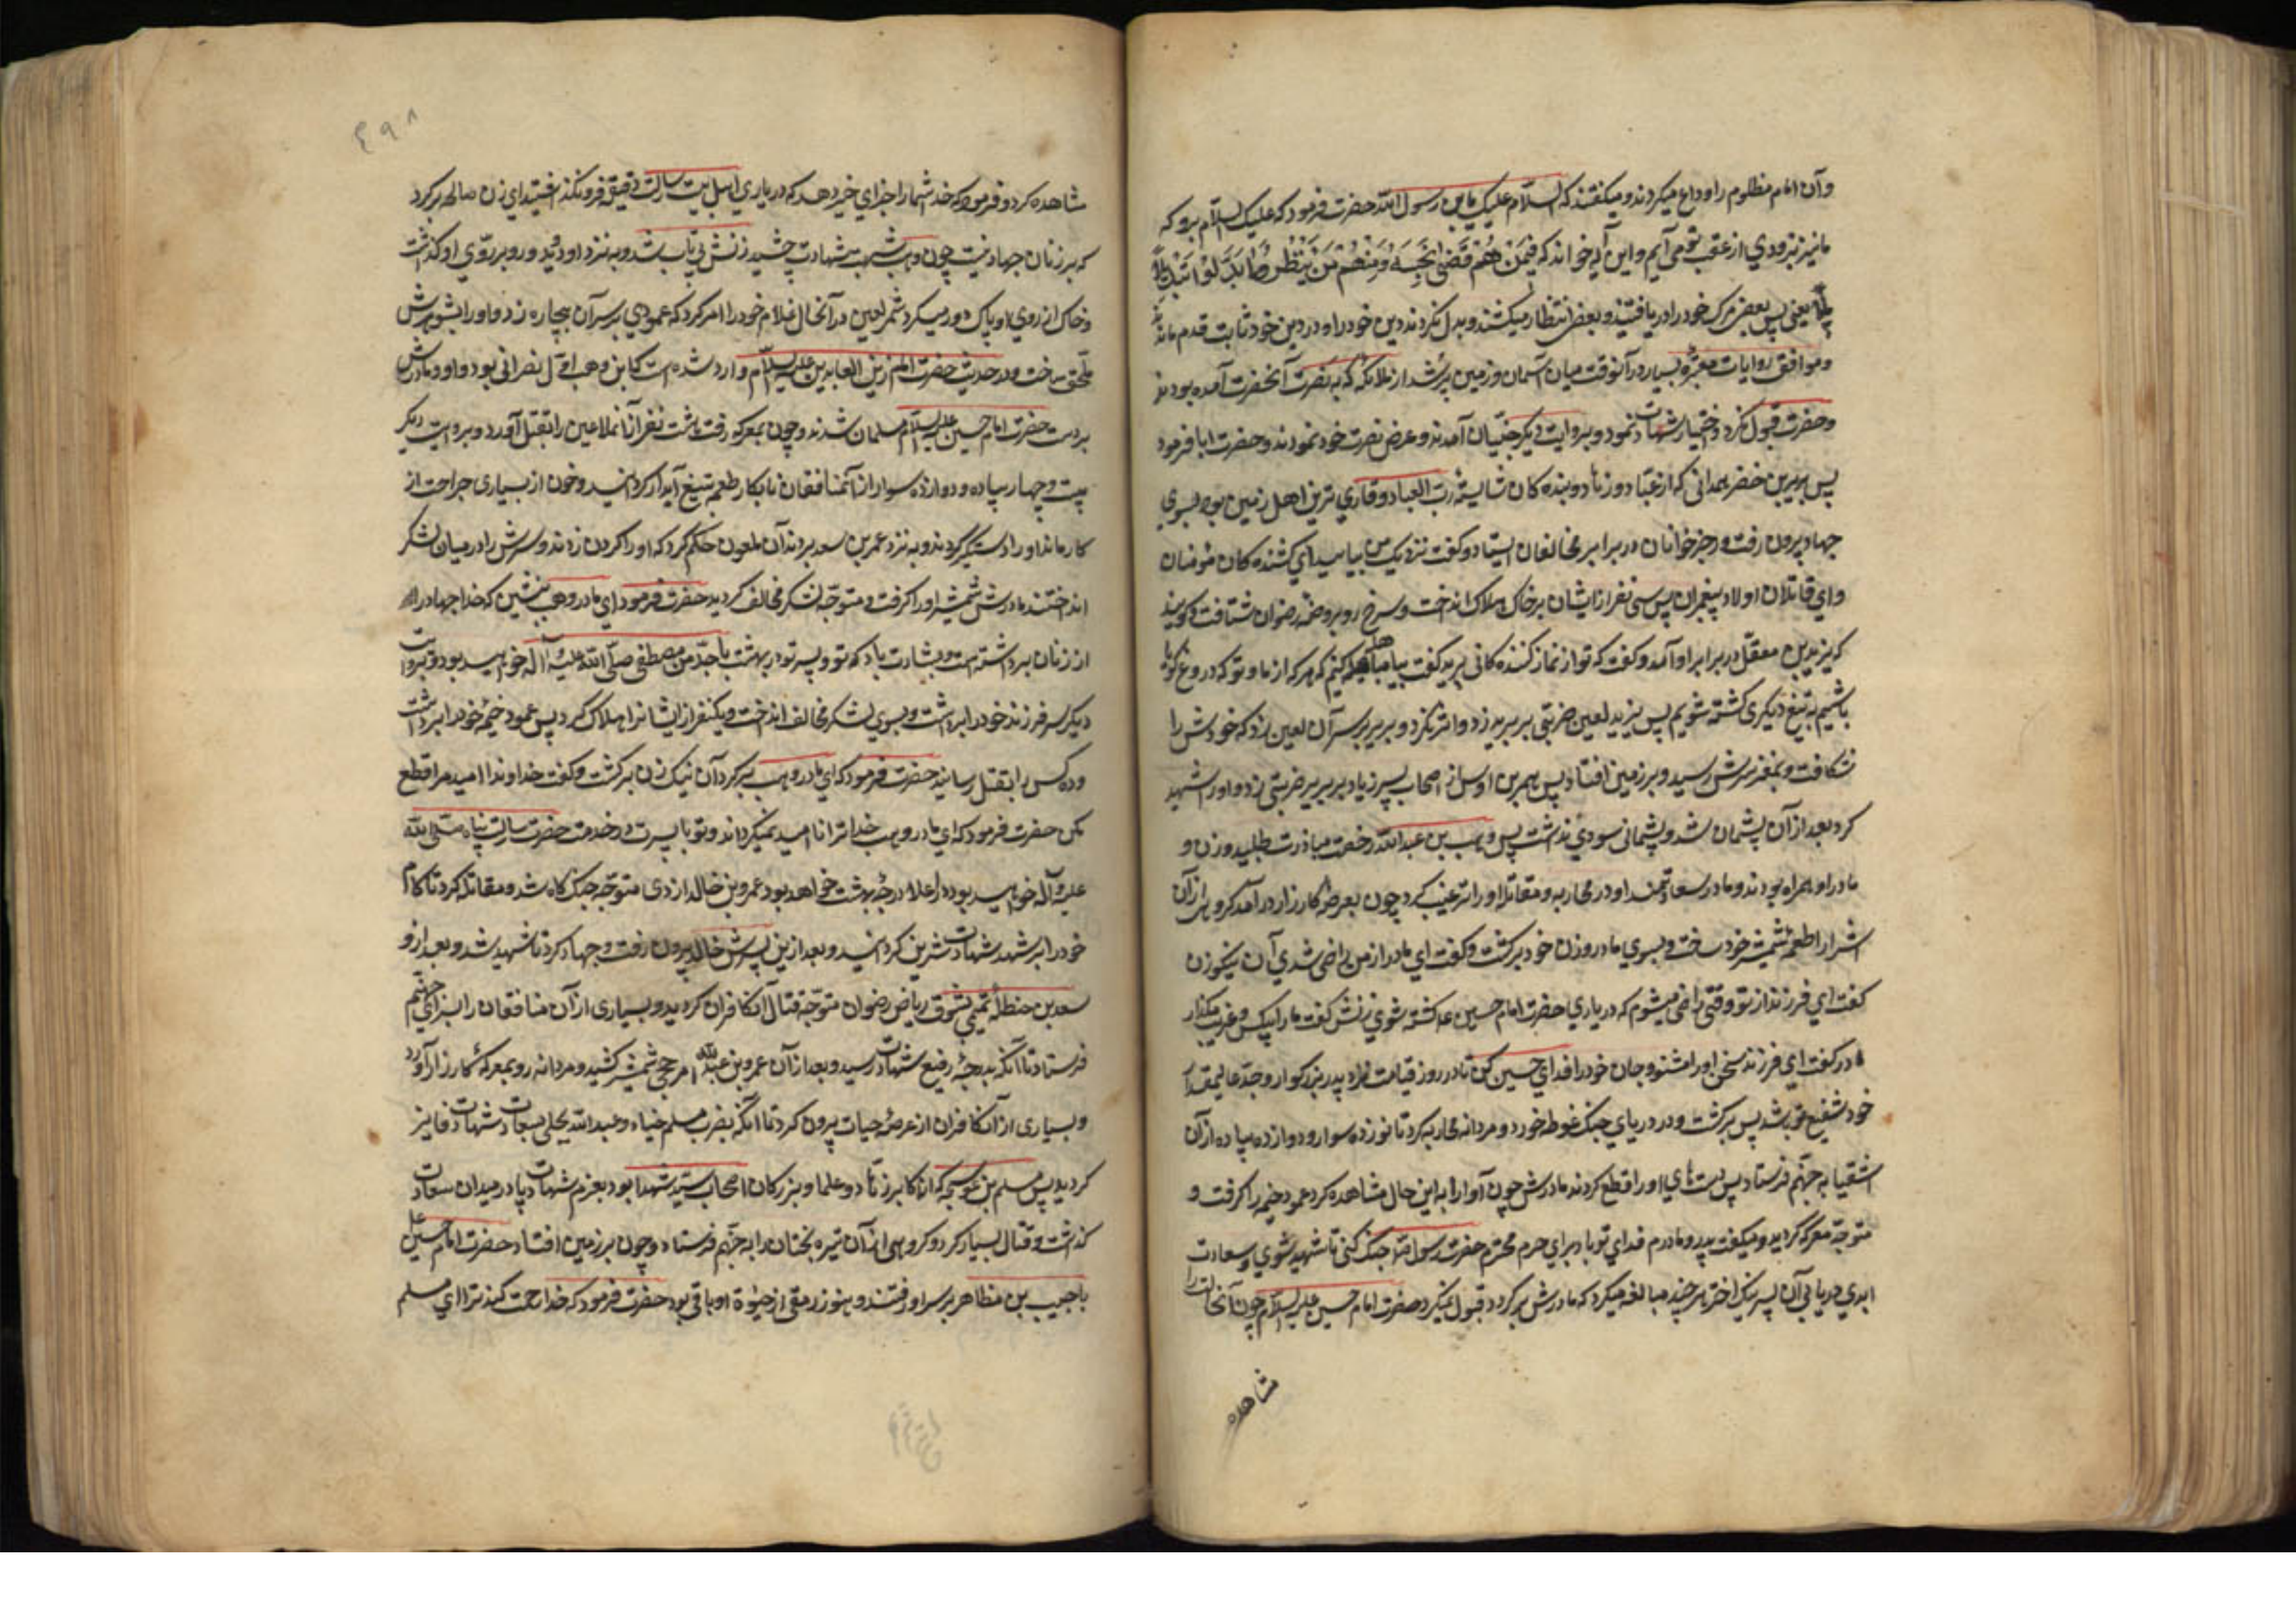 وآن امام مظلوم را وداع میکردند و میگفتند که السلام علیک یابن رسول الله حضرت فرمود که علیک السلام برو که
ما نیز بزودی از عقب تو می آیم و این آیه خواند که فَمِنْهُمْ مَنْ قَضی نَحْبَهُ وَمِنْهُمْ مَنْ یَنْتَظِرُ وَمَا بَدَّلُوا تَبْدِیلاً
یعنی پس بعضی مرک خود را دریافتند و بعضی انتظار میکشند و بدل نکردند دین خود را و در دین خود ثابت قدم ماندند
و موافق روایات معتبره بسیار در آنوقت میان آسمان و زمین پر شد از ملائکه که به نصرت آنحضرت آمده بودند
و حضرت قبول نکرد و اختیار شهادت نمود و بروایت دیکر جنیان آمدند و عرض نصرت خود نمودند و حضرت ابا فرمود
پس بریر بن خضیر همدانی که از عباد و زهاد و بنده کان شایسته رب العباد و قاری ترین اهل زمین بود بسوی
جهاد بیرون رفت و رجز خوانان در برابر مخالفان ایستاد و گفت نزدیک من بیایید ای کشنده کان مؤمنان
و ای قاتلان اولاد پیغمبران پس سی نفر از ایشان بر خاک هلاک انداخت و سرخ رو بروضه رضوان شتافت و کویند
که یزید بن معقل در برابر او آمد و گفت که تو از نماز کننده کانی بریر گفت بیا مباهله کنیم که هر که از ما و تو که دروغ کو
باشیم به تیغ دیکری کشته شویم پس یزید لعین ضربتی بر بریر زد و اثر نکرد و بریر بر سر آن لعین زد که خودش را
شکافت و بمغز سرش رسید و بر زمین افتاد پس بحیر بن اوس از اصحاب پسر زیاد بر بریر ضربتی زد و او را شهید
کرد بعد از آن پشیمان شد و پشیمانی سودی نداشت پس وهب بن عبدالله رخصت مبارزت طلبید و زن و
مادر او همراه بودند و مادر سعادتمند او در محاربه و مقاتله او را ترغیب کرد چون بعرصه کارزار درآمد کروهی از آن
اشرار را طعمه شمشیر خود ساخت و بسوی مادر و زن خود برکشت و گفت ای مادر از من راضی شدی آن نیکوزن
گفت ای فرزند از تو وقتی راضی میشوم که در یاری حضرت امام حسین ع کشته شوی زنش گفت مارا بیکس و غریب مکذار
مادر گفت ای فرزند سخن او را مشنو و جان خود را فدای حسین کن تا در روز قیامت نزد پدر بزرکوار و جد عالیمقدار
خود شفیع تو باشد پس برکشت و در دریای جنک غوطه خورد و مردانه محاربه کرد تا نوزده سوار و دوازده پیاده از آن
اشقیا به جهنم فرستاد پس دست های او را قطع کردند مادرش چون او را به این حال مشاهده کرد عمود خیمه را کرفت و
متوجه معرکه کردید و میگفت پدر و مادرم فدای تو باد برای حرم محترم حضرت رسول الله جنک کنی تا شهید شوی و سعادت
ابدی دریابی آن پسر نیک اختر هر چند مبالغه میکرد که مادرش برکردد قبول نمیکرد حضرت امام حسین علیه السلام چون آنحالت را
شاهده
۴۹۸
شاهده کرد و فرمود که خدا شما را جزای خیر دهد که در یاری اهل بیت رسالت دقیقه فرونگذاشتید ای زن صالحه برکرد
که بر زنان جهاد نیست چون وهب شربت شهادت چشید زنش بی تاب شد و به نزد او دوید و رو بر روی او کذاشت
و خاک از روی او پاک دور میکرد شمر لعین در آنحال غلام خود را امر کرد که عمودی بر سر آن بیچاره زد و او را بشوهرش
ملحق ساخت و در حدیث حضرت امام زین العابدین علیه السلام وارد شده است که ابن وهب اول نصرانی بود و او و مادرش
بر دست حضرت امام حسین علیه السلام مسلمان شدند و چون بمعرکه رفت هشت نفر از آن ملاعین را بقتل آورد و بروایت دیکر
بیست و چهار پیاده و دوازده سوار از آن منافقان نابکار طعمه تیغ آبدار کردانید و چون از بسیاری جراحت از
کار ماند او را دستکیر کردند و به نزد عمر بن سعد بردند آن ملعون حکم کرد که او را کردن زدند و سرش را در میان لشکر
انداختند مادرش شمشیر او را کرفت و متوجه لشکر مخالف کردید حضرت فرمود ای مادر وهب بنشین که خدا جهاد را
از زنان برداشته است و بشارت باد که تو و پسر تو در بهشت با جد من مصطفی صلی الله علیه و آله خواهید بود و بروایت
دیکر سر فرزند خود را برداشت و بسوی لشکر مخالف انداخت و یکنفر از ایشانرا هلاک کرد پس عمود خیمه خود را برداشت
و ده کس را بقتل رسانید حضرت فرمود که ای مادر وهب برکرد آن نیک زن برکشت و گفت خداوندا امید مرا قطع
مکن حضرت فرمود که ای مادر وهب خدا ترا نا امید نمیکرداند و تو با پسرت در خدمت حضرت رسالت پناه صلی الله
علیه و آله خواهید بود در اعلا درجه بهشت خواهد بود عمرو بن خالد ازدی متوجه جنکگاه شد و مقاتله کرد تا کام
خود را بر شهد شهادت شیرین کردانید و بعد ازین پسرش خالد بیرون رفت و جهاد کرد تا شهید شد و بعد از و
سعد بن حنظله تمیمی بشوق ریاض رضوان متوجه قتال آن کافران کردید و بسیاری از آن منافقان را بسزای جهنم
فرستاد تا آنکه بدرجه رفیع شهادت رسید و بعد از آن عمرو بن عبدالله امر حجی شمشیر کشید و مردانه رو بمعرکه کارزار آورد
و بسیاری از آن کافران از عرصه حیات بیرون کرد تا آنکه بضرب مسلم ضیاء و عبدالله بجلی بسعادت شهادت فایز
کردید پس مسلم بن عوسجه که از اکابر زهاد و علما و بزرکان اصحاب سید شهدا بود بعزم شهادت پا در میدان سعادت
کذاشت و قتال بسیار کرد و کروهی از آن تیره بختان را به جهنم فرستاد و چون بر زمین افتاد حضرت امام حسین ع
با حبیب بن مظاهر بر سر او رفتند و هنوز رمقی از حیوة او باقی بود حضرت فرمود که خدا رحمت کند ترا ای مسلم